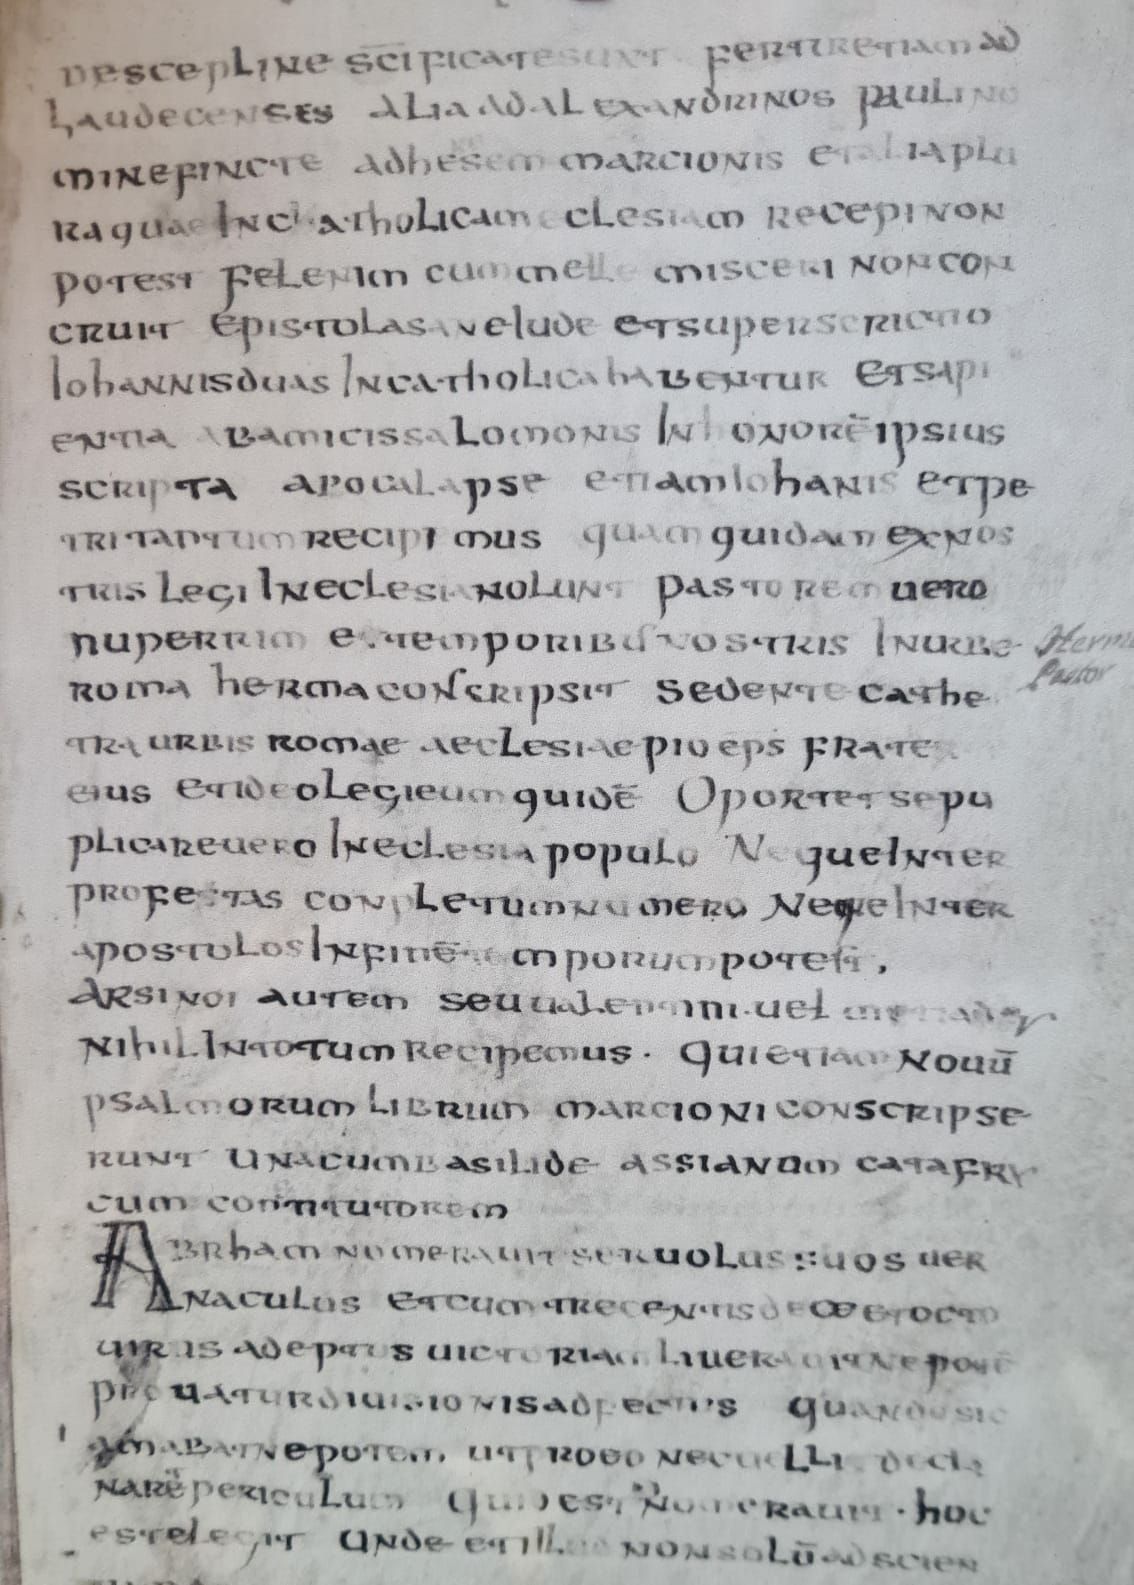 descepline scificate sunt fertur etiam ad
Laudecenses alia ad alexandrinos pauli no
mine fincte ad hesem marcionis et alia plu
ra quae In chatholicam eclesiam recepi non
potest fel enim cum melle misceri non con
cruit epistola sane Iude et superscrictio
Iohannis duas In catholica habentur et sapi
entia ab amicis salomonis In honorē ipsius
scripta apocalapse etiam Iohanis et pe
tri tantum recipimus quam quidam ex nos
tris legi In eclesia nolunt pastorem uero
nuperrim e temporibus nostris In urbe
roma herma conscripsit sedente cathe
tra urbis romae aeclesiae pio eps frater
eius et ideo legi eum quidē Oportet se pu
plicare uero In eclesia populo Neque Inter
profestas conpletum numero Neque Inter
apostolos In finē temporum potest,
Arsinoi autem seu ualentini. uel
nihil In totum recipemus. Qui etiam nouū
psalmorum librum marcioni conscripse
runt una cum basilide assianum catafry
cum contitutorem
Abrham nomerauit seruolus suos uer
naculus et cum trecentis dece et octo
uiris adeptus uictoriam liuerauit nepotē
prouatur diuisionis adfectus quando sic
amabat nepotem. ut pro eo nec uelli decli
narē periculum Quid est Nomerauit. hoc
est elegit Unde et illud non solū ad scien
Herma
Pastor